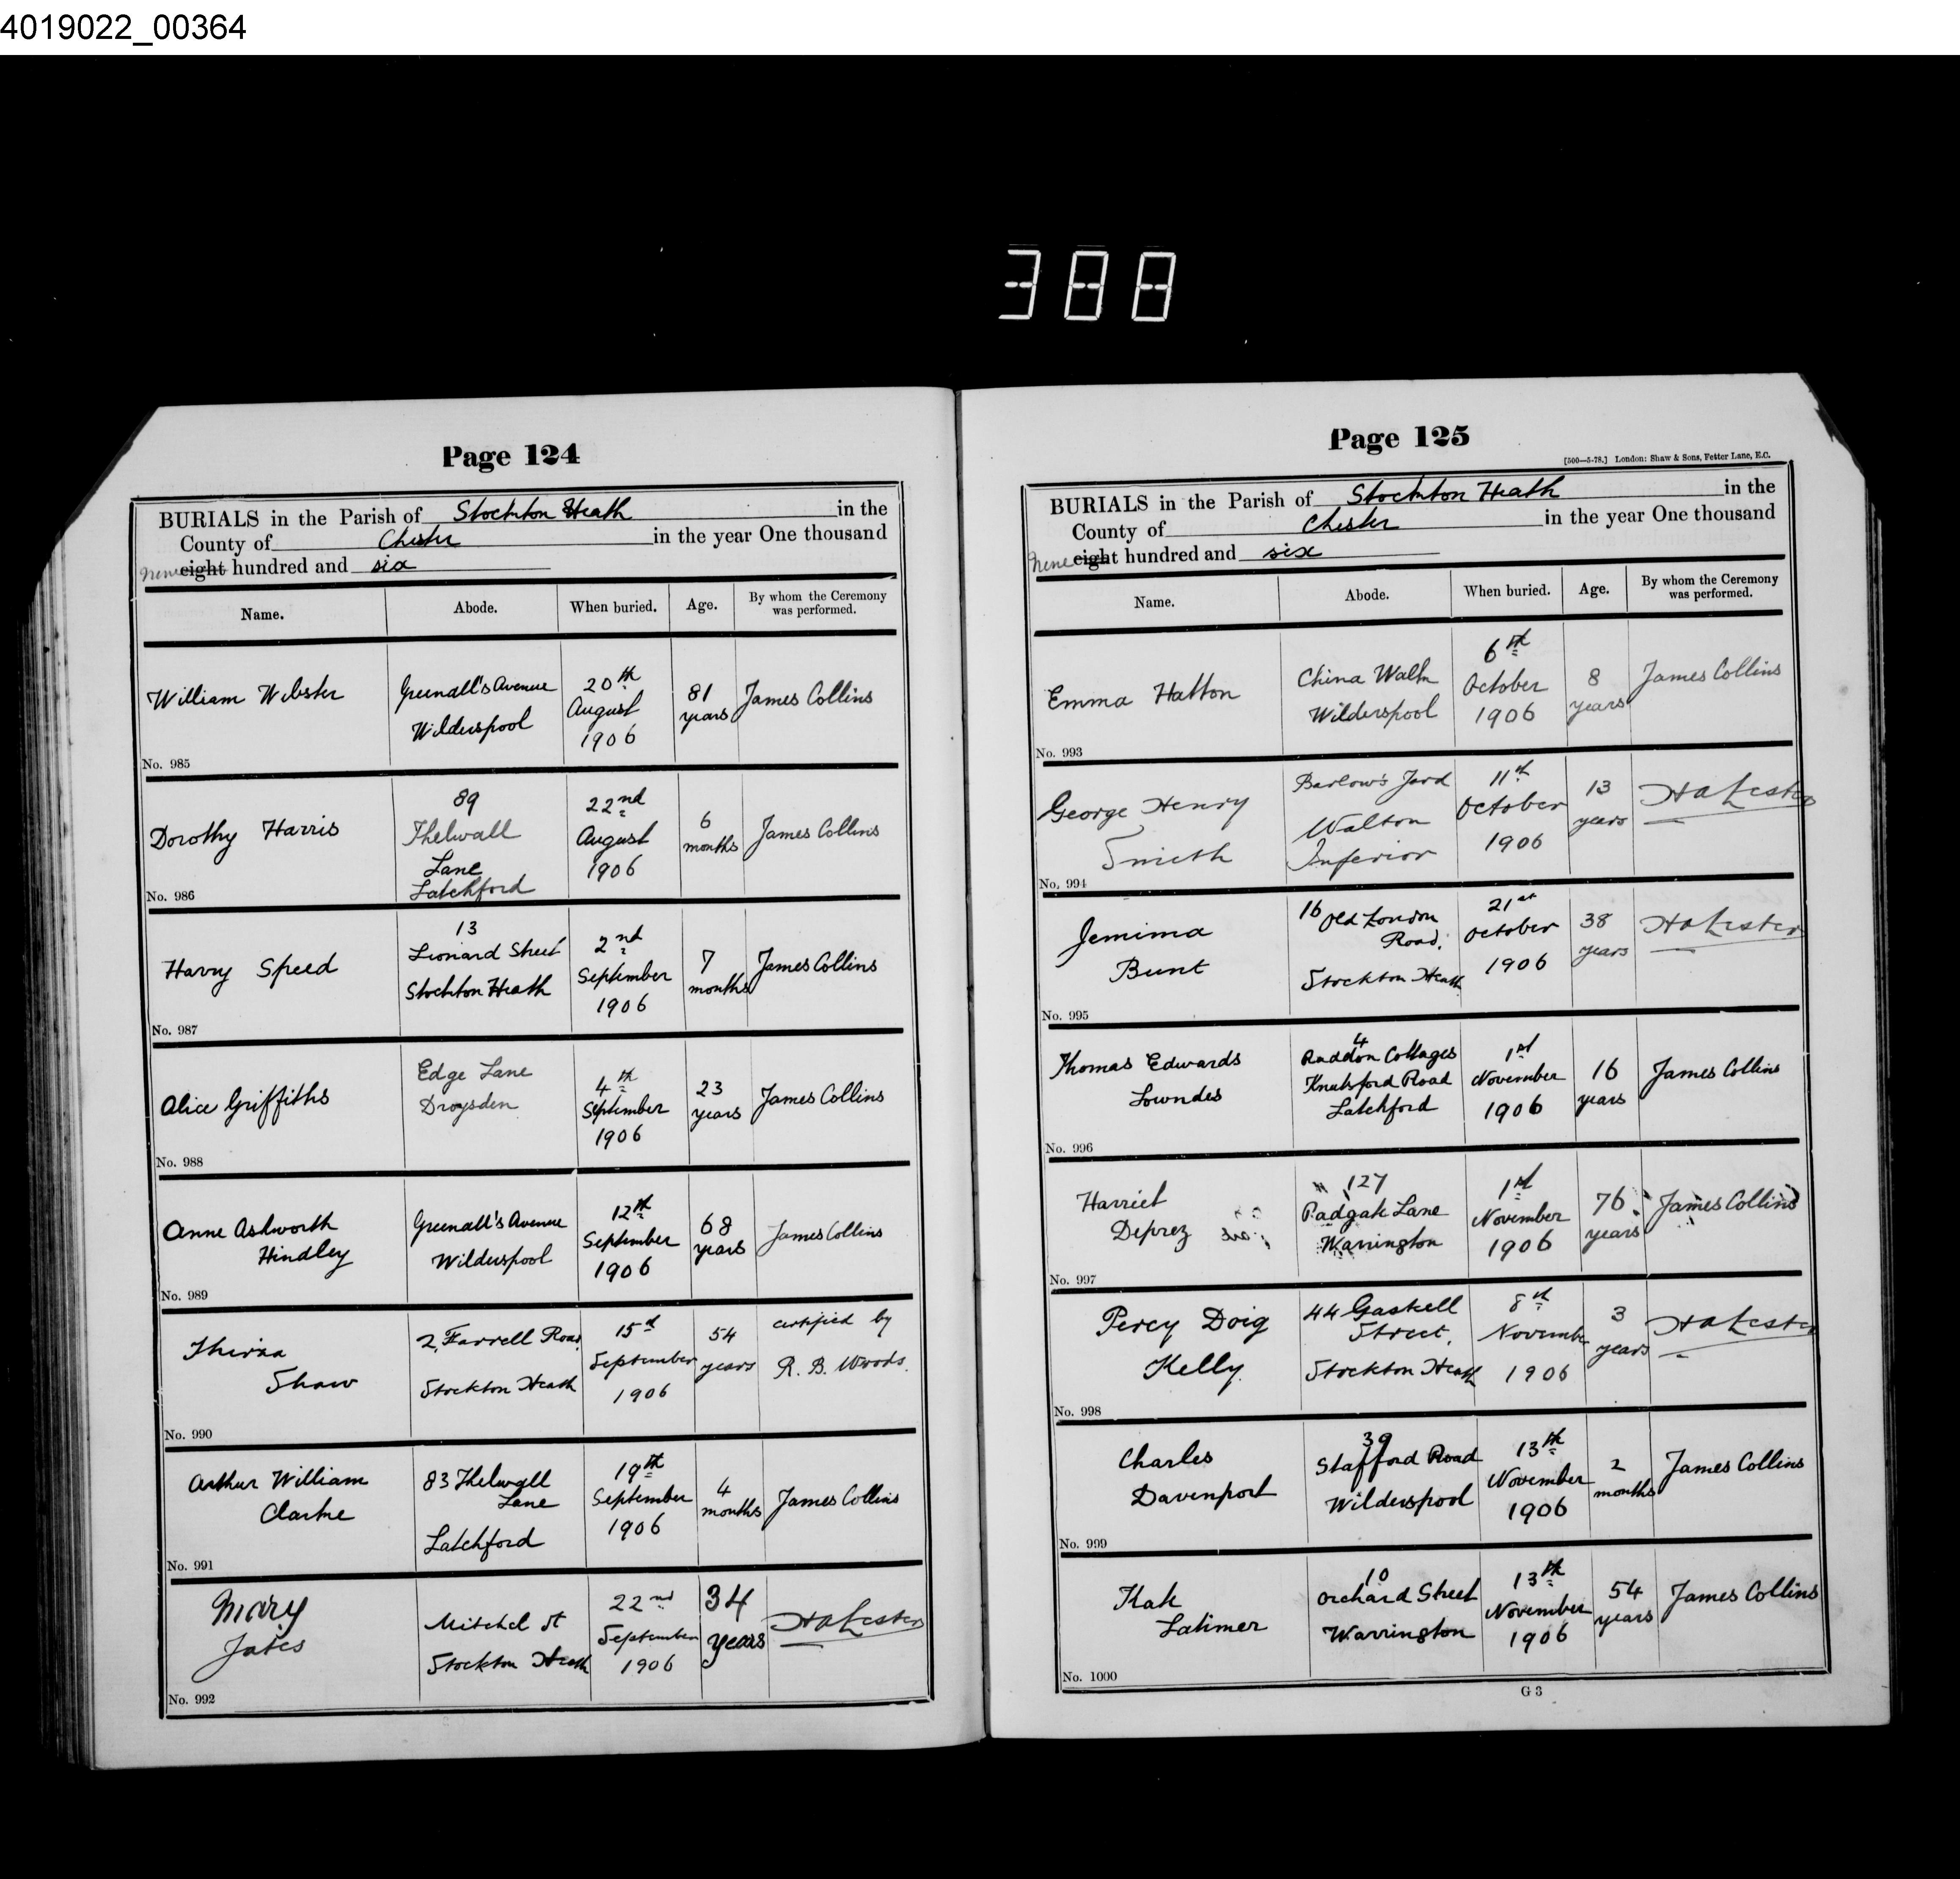 4019022_00364
388
Page 124
BURIALS in the Parish of Stockton Heath in the
County of Chester in the year One thousand
nine eight hundred and six
Name. Abode. When buried. Age. By whom the Ceremony was performed.
William Webster
Greenall's Avenue
Wilderspool
20th
August
1906
81
years
James Collins
No. 985
Dorothy Harris
89
Thelwall
Lane
Latchford
22nd
August
1906
6
months
James Collins
No. 986
Harry Speed
13
Leonard Street
Stockton Heath
2nd
September
1906
7
months
James Collins
No. 987
Alice Griffiths
Edge Lane
Droysden
4th
September
1906
23
years
James Collins
No. 988
Anne Ashworth
Hindley
Greenall's Avenue
Wilderspool
12th
September
1906
68
years
James Collins
No. 989
Thirza
Shaw
2, Farrell Road,
Stockton Heath
15th
September
1906
54
years
certified by
R. B. Woods.
No. 990
Arthur William
Clarke
83 Thelwall
Lane
Latchford
19th
September
1906
4
months
James Collins
No. 991
Mary
Yates
Mitchel St
Stockton Heath
22nd
September
1906
34
years
No. 992
Page 125
[500—5-78.] London: Shaw & Sons, Fetter Lane, E.C.
BURIALS in the Parish of Stockton Heath in the
County of Chester in the year One thousand
nine eight hundred and six
Name. Abode. When buried. Age. By whom the Ceremony was performed.
Emma Hatton
China Walk
Wilderspool
6th
October
1906
8
years
James Collins
No. 993
George Henry
Smith
Barlow's Yard
Walton
Inferior
11th
October
1906
13
years
No. 994
Jemima
Bunt
16 Old London
Road,
Stockton Heath
21st
October
1906
38
years
No. 995
Thomas Edwards
Lowndes
4
Raddon Cottages
Knutsford Road
Latchford
1st
November
1906
16
years
James Collins
No. 996
Harriet
Deprez
127
Padgate Lane
Warrington
1st
November
1906
76
years
James Collins
No. 997
Percy Doig
Kelly
44 Gaskell
Street,
Stockton Heath
8th
November
1906
3
years
No. 998
Charles
Davenport
39
Stafford Road
Wilderspool
13th
November
1906
2
months
James Collins
No. 999
Kate
Latimer
10
Orchard Street
Warrington
13th
November
1906
54
years
James Collins
No. 1000
G 3